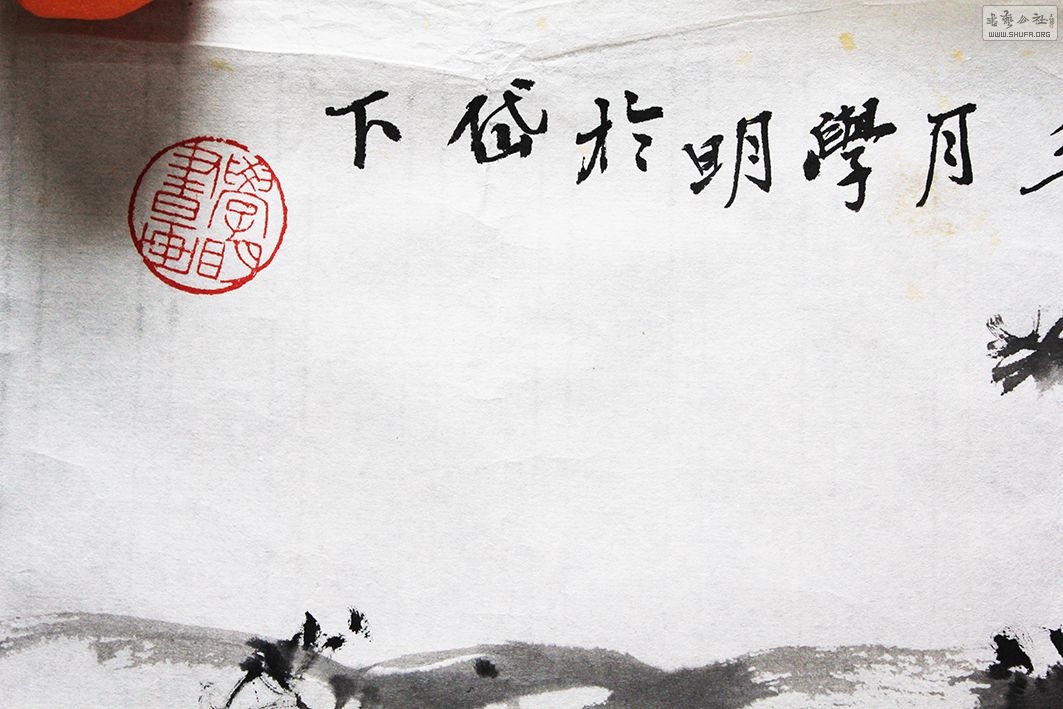 月學明於岱下
學明書畫
書藝公社
WWW.SHUFA.ORG